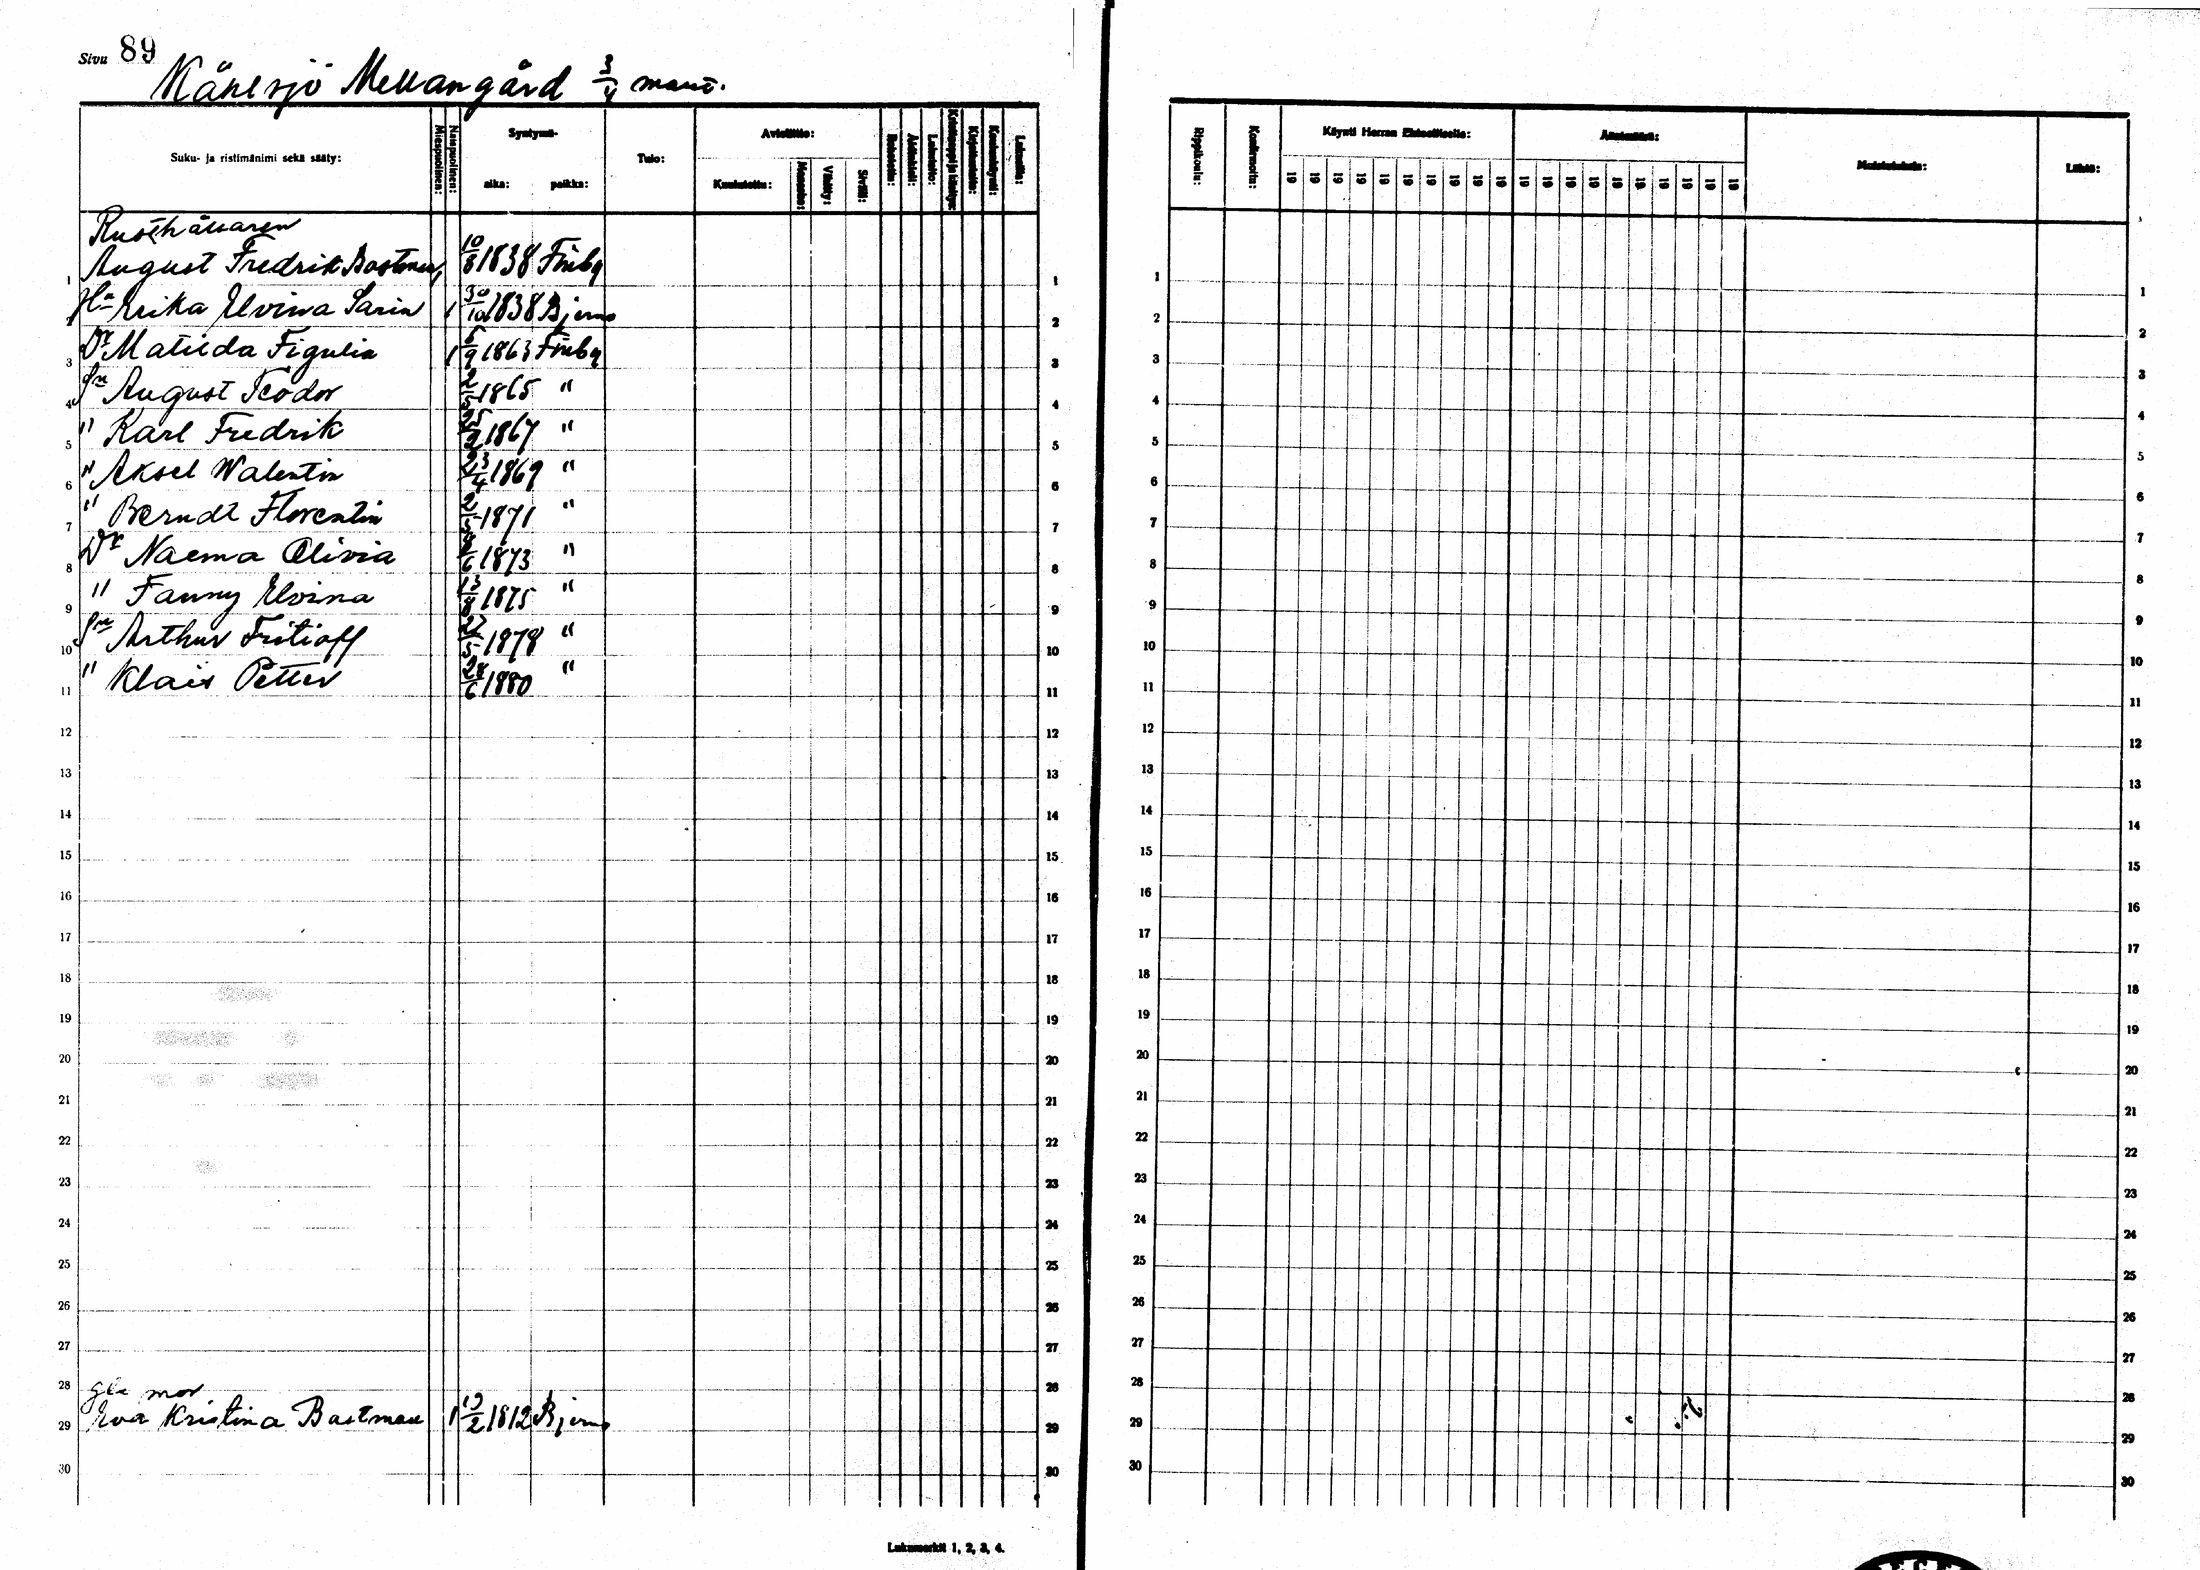 Sivu 89
Känsjö Mellangård 3/4 mant.
Suku- ja ristimänimi sekä sääty: Miespuolinen: Naispuolinen: Syntymä- aika: paikka: Tulo: Avioliitto: Kuulutettu: Vihitty: Siviili:
Rusthållaren
1 August Fredrik Bastman, 10/8 1838 Finby 1
2 Hu Erika Elvina Sarin 1 30/10 1838 Bjerno 2
3 Dr Matilda Figulia 1 5/9 1863 Finby 3
4 Sn August Teodor 2/5 1865 " 4
5 " Karl Fredrik 1867 " 5
6 " Aksel Walentin 23/4 1869 " 6
7 " Berndt Florentin 2/5 1871 " 7
8 Dr Naema Olivia 1873 " 8
9 " Fanny Elvina 13/8 1875 " 9
10 Sn Arthur Fritioff 1878 " 10
11 " Klais Petter 28/6 1880 " 11
12 12
13 13
14 14
15 15
16 16
17 17
18 18
19 19
20 20
21 21
22 22
23 23
24 24
25 25
26 26
27 27
28 gla mor 28
29 Eva Kristina Bastman 1 19/2 1812 Bjerno 29
30 30
Lukumerkit 1, 2, 3, 4.
Rippikoulu: Konfirmoitu: Käynti Herran Ehtoollisella: Muistutuksia: Lähtö:
19 19 19 19 19 19 19 19 19 19 19 19 19 19 19 19 19 19 19 19
1 1
2 2
3 3
4 4
5 5
6 6
7 7
8 8
9 9
10 10
11 11
12 12
13 13
14 14
15 15
16 16
17 17
18 18
19 19
20 20
21 21
22 22
23 23
24 24
25 25
26 26
27 27
28 28
29 29
30 30